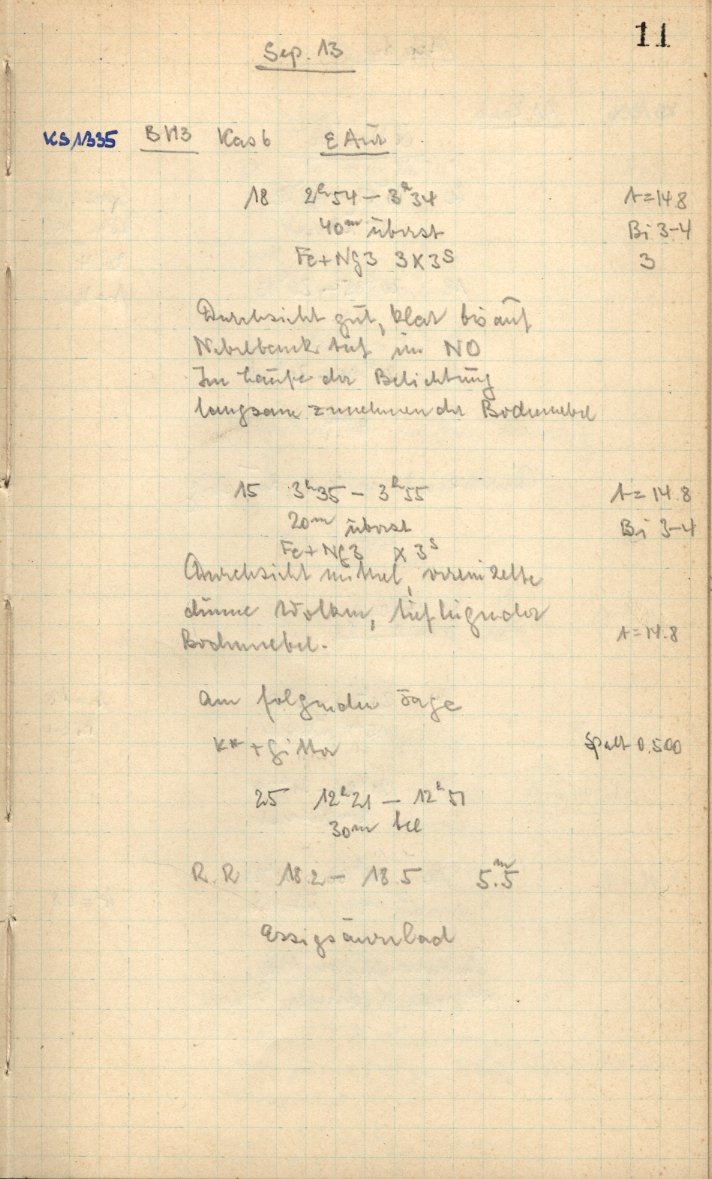 11
Sep. 13
KS 1335 BH3 Kas 6 ε Aur
18 2h54 – 3h34 t=14.8
40m überst Bi 3-4
Fe+Ng3 3x3s 3
Durchsicht gut, klar bis auf
Nebelbank tief im NO
Im Laufe der Belichtung
langsam zunehmender Bodennebel
15 3h35 – 3h55 t=14.8
20m überst Bi 3-4
Fe+Ng3 x3s
Durchsicht mittel, vereinzelte
dünne Wolken, tiefliegender
Bodennebel. t=14.8
Am folgenden Tage
K* + Gitter Spalt 0.500
25 12h21 – 12h51
30m bel
R.R 18.2 – 18.5 5.m5
Essigsäurebad